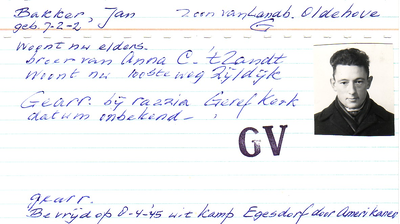 Bakker, Jan zoon van Landb. Oldehove
geb. 7-2-2 G
Woont nu elders.
broer van Anna C. 't Zandt
Woont nu weg Zijldijk
Gearr. bij razzia Geref Kerk
datum onbekend -
GV
gearr.
Bevrijd op 8-4-'45 uit Kamp Egesdorf door Amerikanen